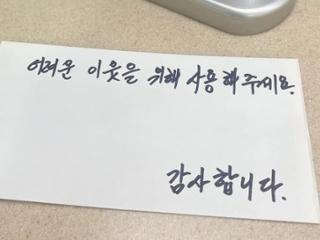 어려운 이웃을 위해 사용해 주세요.
감사합니다.